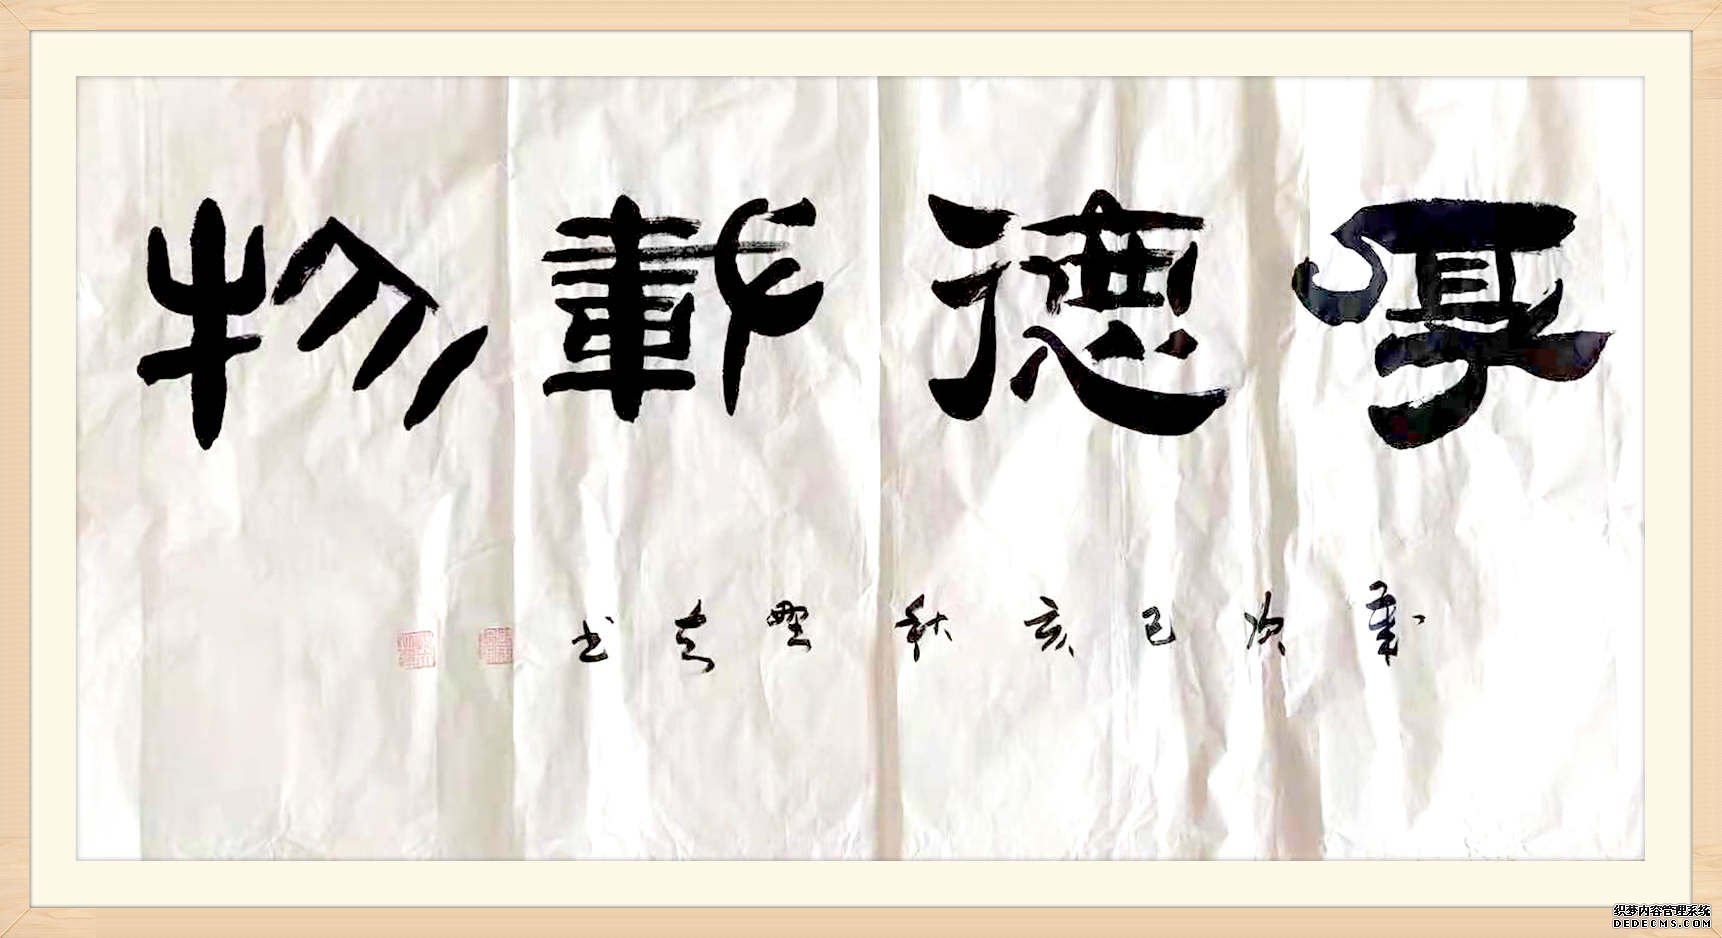 厚德載物
歲次己亥秋 野夫书
织梦内容管理系统
DEDECMS.COM